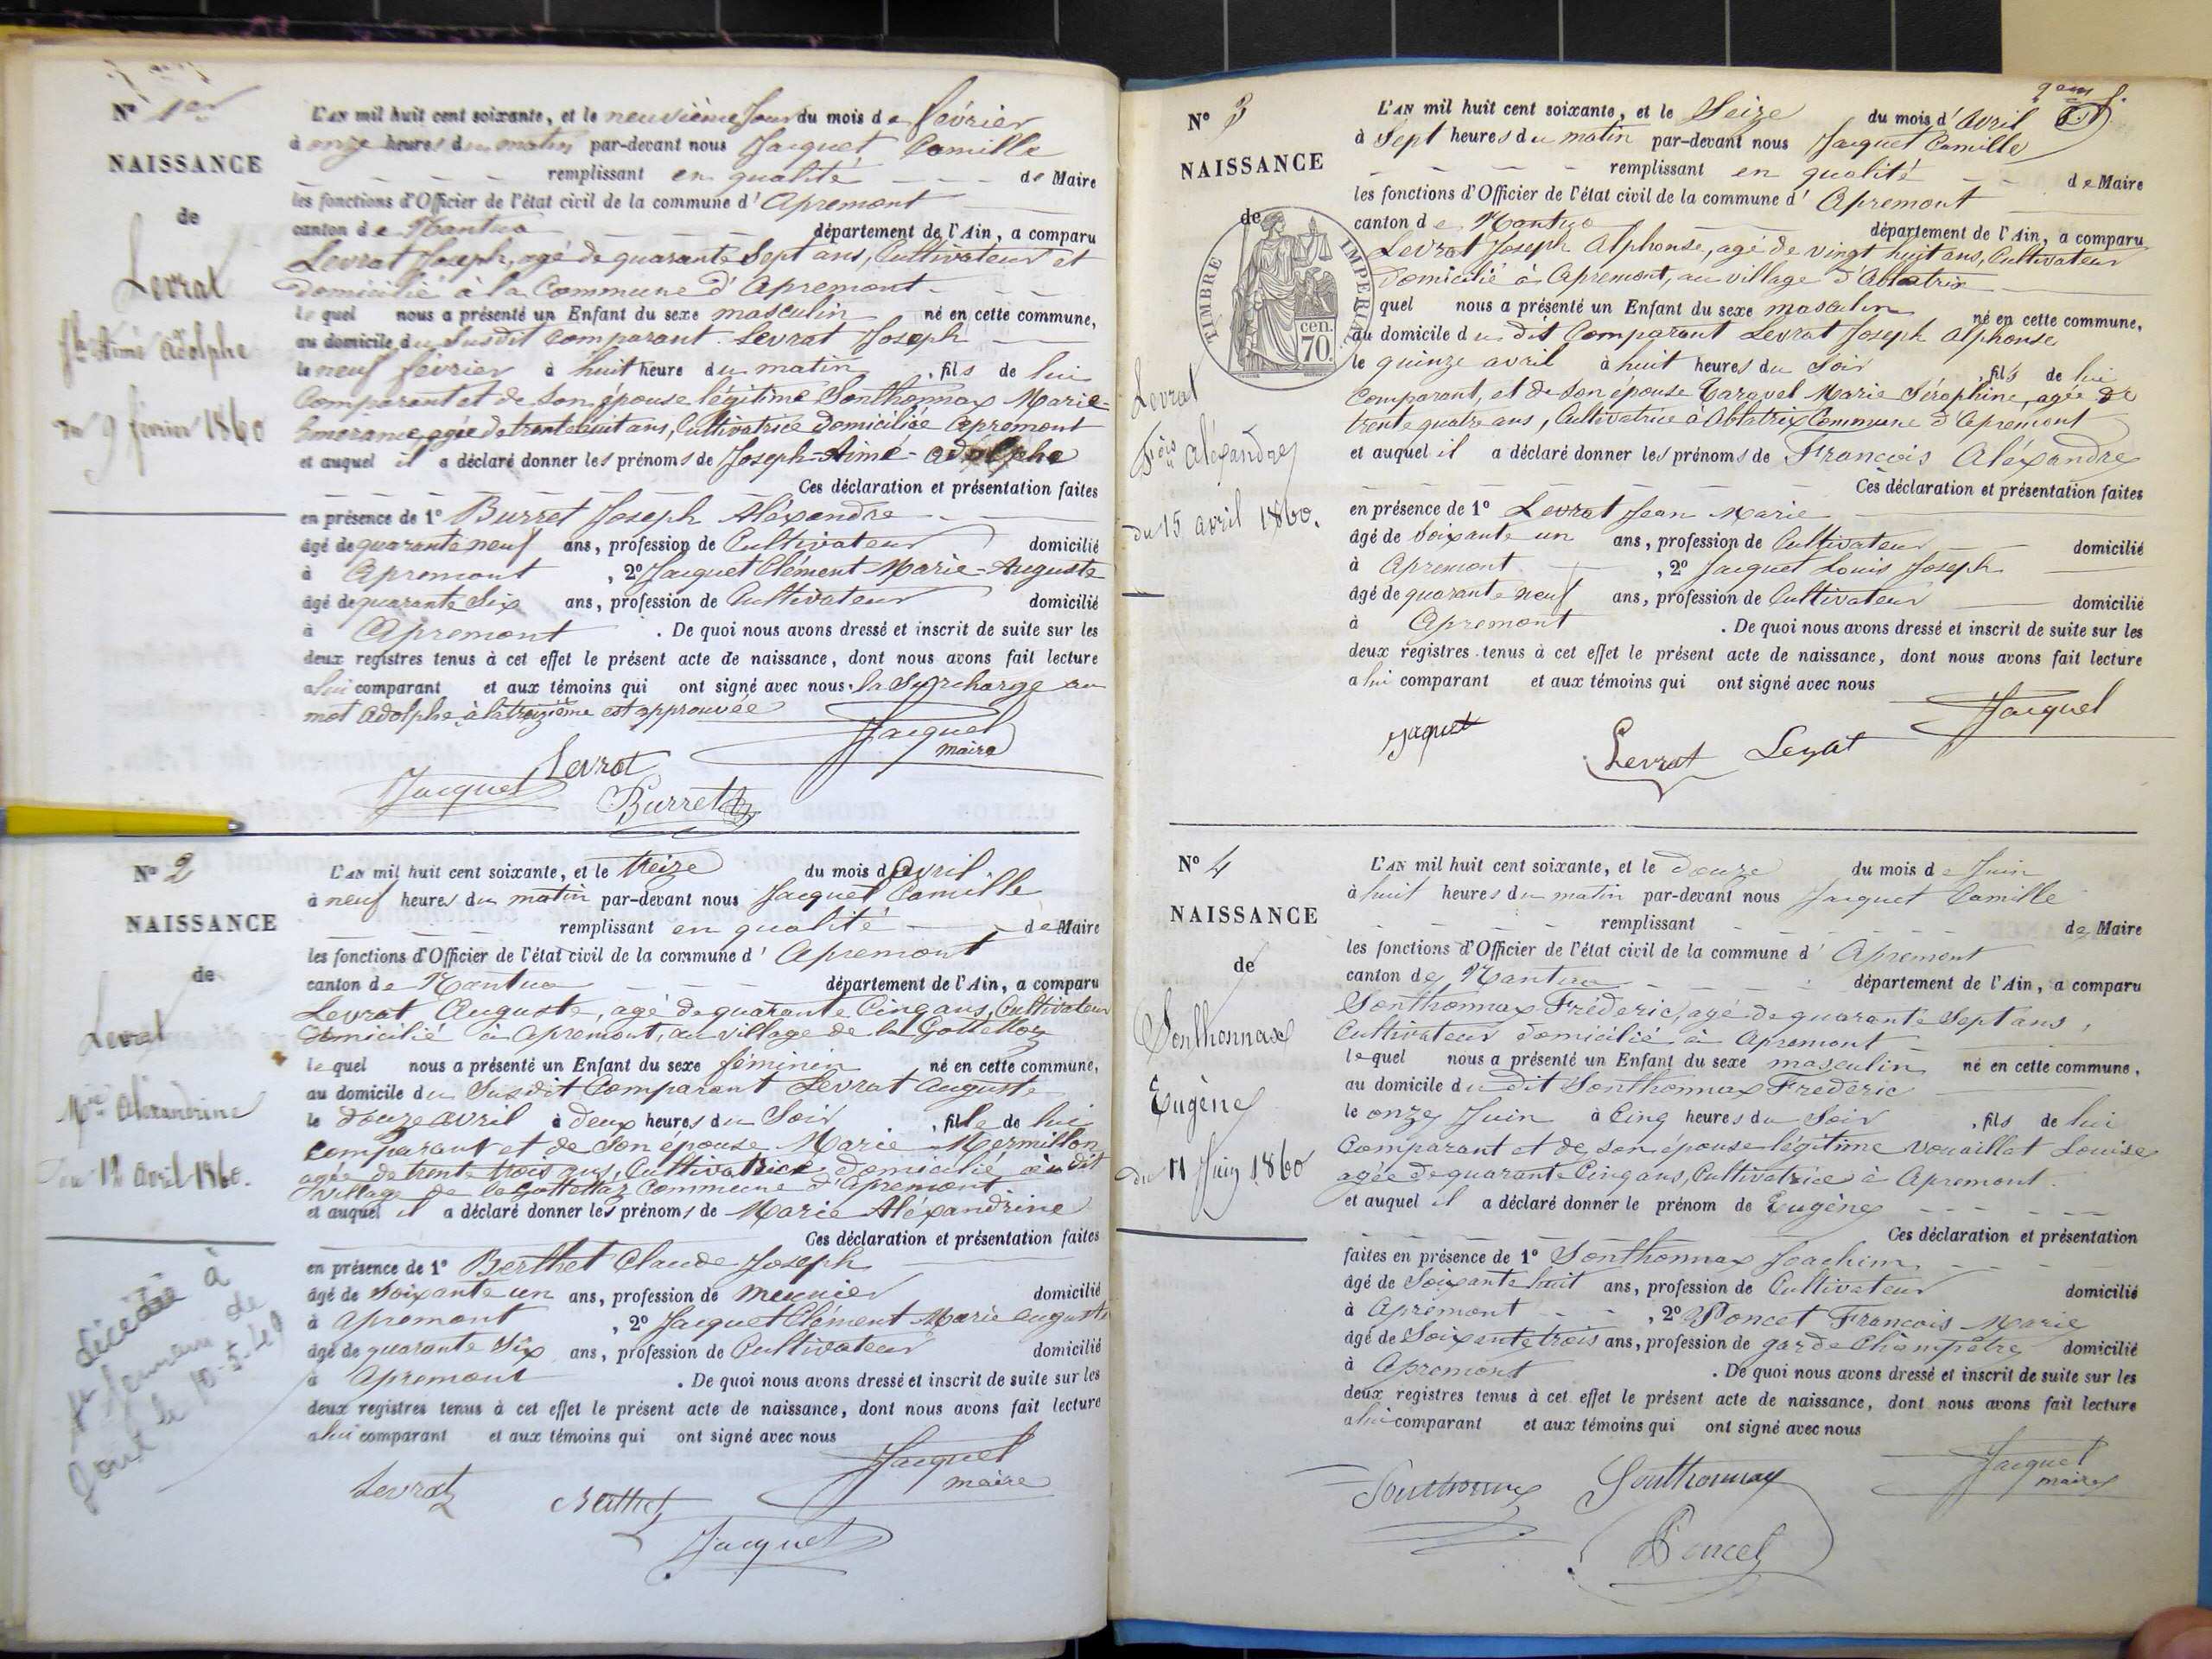 N° 1er
NAISSANCE
de
Levrat
Jh Aimé Adolphe
du 9 février 1860
L'AN mil huit cent soixante, et le neuvième Jour du mois de février
à onze heures du matin par-devant nous Jacquet Camille
remplissant en qualité de Maire
les fonctions d'Officier de l'état civil de la commune d' Apremont
canton de Nantua département de l'Ain, a comparu
Levrat Joseph, agé de quarante Sept ans, Cultivateur et
domicilié à la Commune d'Apremont
le quel nous a présenté un Enfant du sexe masculin né en cette commune,
au domicile du Susdit comparant Levrat Joseph
le neuf février à huit heure du matin, fils de lui
Comparant et de Son épouse légitime Sonthonnax Marie-
Emorance agée de trente huit ans, Cultivatrice domiciliée Apremont
et auquel il a déclaré donner les prénoms de Joseph-Aimé-Adolphe
Ces déclaration et présentation faites
en présence de 1° Burret Joseph Aléxandre
âgé de quarante neuf ans, profession de Cultivateur domicilié
à Apremont, 2° Jacquet Clément Marie-Auguste
âgé de quarante Six ans, profession de Cultivateur domicilié
à Apremont. De quoi nous avons dressé et inscrit de suite sur les
deux registres tenus à cet effet le présent acte de naissance, dont nous avons fait lecture
a lui comparant et aux témoins qui ont signé avec nous. la Surcharge au
mot Adolphe, à la treizième est approuvée
Jacquet
maire
Levrat
Jacquet
Burret
N° 2
NAISSANCE
de
Levrat
Mie Alexandrine
du 12 avril 1860.
décédée à
St Germain de
Joux le 10-5-49
L'AN mil huit cent soixante, et le treize du mois d'Avril
à neuf heures du matin par-devant nous Jacquet Camille
remplissant en qualité de Maire
les fonctions d'Officier de l'état civil de la commune d' Apremont
canton de Nantua département de l'Ain, a comparu
Levrat Auguste, agé de quarante Cinq ans, Cultivateur
domicilié à Apremont, au village de la Gottettaz
le quel nous a présenté un Enfant du sexe féminin né en cette commune,
au domicile du Susdit Comparant Levrat Auguste
le douze avril à deux heures du Soir, fille de lui
Comparant et de Son épouse Marie Mermillon
agée de trente trois ans, Cultivatrice domicilié au dit
village de la Gottettaz Commune d'Apremont
et auquel il a déclaré donner les prénoms de Marie Aléxandrine
Ces déclaration et présentation faites
en présence de 1° Berthet Claude Joseph
âgé de Soixante un ans, profession de meunier domicilié
à Apremont, 2° Jacquet Clément Marie Auguste
âgé de quarante Six ans, profession de Cultivateur domicilié
à Apremont. De quoi nous avons dressé et inscrit de suite sur les
deux registres tenus à cet effet le présent acte de naissance, dont nous avons fait lecture
a lui comparant et aux témoins qui ont signé avec nous
Jacquet
maire
Levrat
Berthet
Jacquet
N° 3
NAISSANCE
de
TIMBRE IMPERIAL
cen.
70.
Levrat
Fçois Aléxandre
du 15 avril 1860.
L'AN mil huit cent soixante, et le Seize du mois d'Avril
à Sept heures du matin par-devant nous Jacquet Camille
remplissant en qualité de Maire
les fonctions d'Officier de l'état civil de la commune d' Apremont
canton de Nantua département de l'Ain, a comparu
Levrat Joseph Alphonse, agé de vingt huit ans, Cultivateur
domicilié à Apremont, au village d'Ablatrix
quel nous a présenté un Enfant du sexe masculin né en cette commune,
au domicile du dit Comparant Levrat Joseph Alphonse
le quinze avril à huit heures du Soir, fils de lui
Comparant, et de Son épouse Taravel Marie Séraphine, agée de
trente quatre ans, Cultivatrice à Ablatrix Commune d'Apremont
et auquel il a déclaré donner les prénoms de François Aléxandre
Ces déclaration et présentation faites
en présence de 1° Levrat Jean Marie
âgé de Soixante un ans, profession de Cultivateur domicilié
à Apremont, 2° Jacquet Louis Joseph
âgé de quarante neuf ans, profession de Cultivateur domicilié
à Apremont. De quoi nous avons dressé et inscrit de suite sur les
deux registres tenus à cet effet le présent acte de naissance, dont nous avons fait lecture
a lui comparant et aux témoins qui ont signé avec nous
Jacquet
Jaquet
Levrat
Levrat
N° 4
NAISSANCE
de
Sonthonnax
Eugène
du 11 Juin 1860
L'AN mil huit cent soixante, et le douze du mois de Juin
à huit heures du matin par-devant nous Jacquet Camille
remplissant de Maire
les fonctions d'Officier de l'état civil de la commune d' Apremont
canton de Nantua département de l'Ain, a comparu
Sonthonnax Fréderic, agé de quarante Sept ans,
Cultivateur domicilié à Apremont
le quel nous a présenté un Enfant du sexe masculin né en cette commune,
au domicile du dit Sonthonnax Frédéric
le onze Juin à Cinq heures du Soir, fils de lui
Comparant et de son épouse légitime Vouaillat Louise
agée de quarante Cinq ans, Cultivatrice à Apremont.
et auquel il a déclaré donner le prénom de Eugène
Ces déclaration et présentation
faites en présence de 1° Sonthonnax Joachim
âgé de Soixante huit ans, profession de Cultivateur domicilié
à Apremont, 2° Poncet François Marie
âgé de Soixante trois ans, profession de garde Champêtre domicilié
à Apremont. De quoi nous avons dressé et inscrit de suite sur les
deux registres tenus à cet effet le présent acte de naissance, dont nous avons fait lecture
a lui comparant et aux témoins qui ont signé avec nous
Jacquet
maire
Sonthonnax
Sonthonnax
Poncet